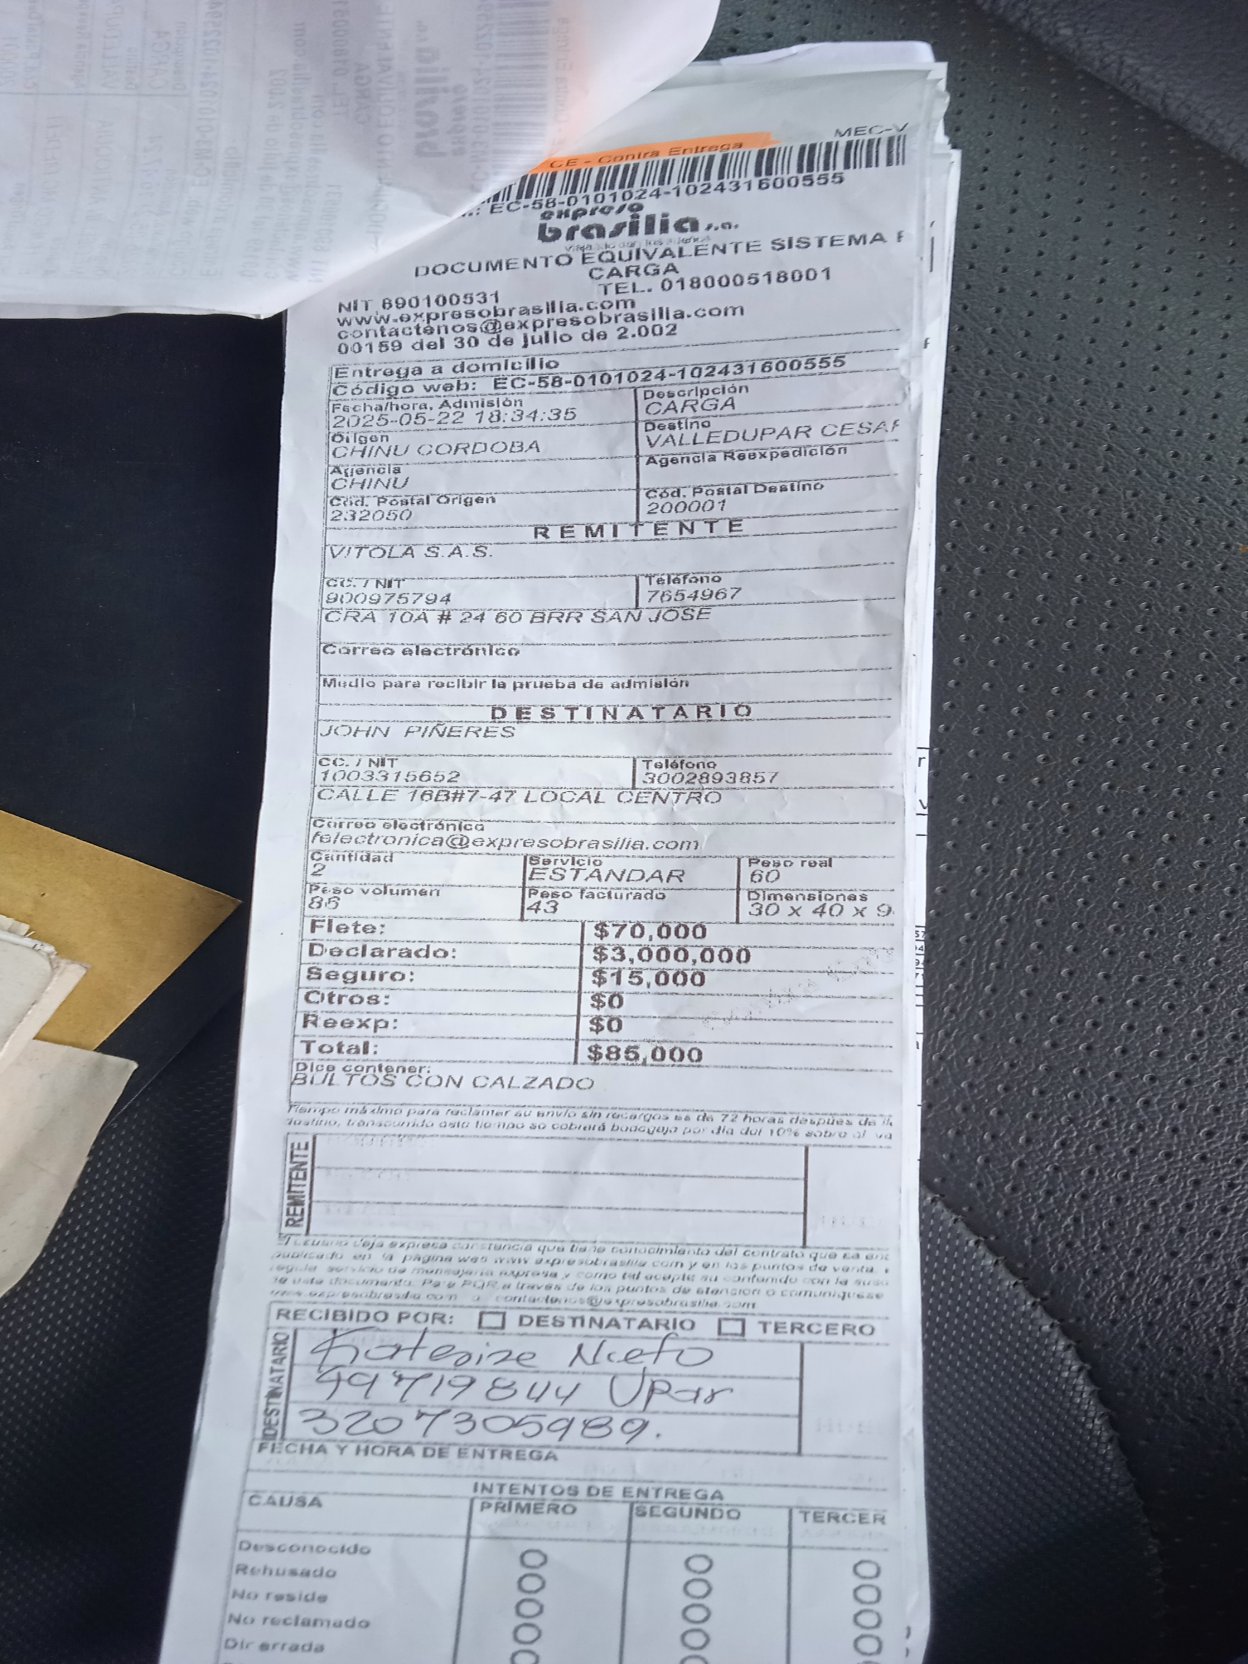 MEC-V
CE - Contra Entrega
.: EC-58-0101024-102431600555
expreso
brasilia s.a.
DOCUMENTO EQUIVALENTE SISTEMA
CARGA
NIT 890100531 TEL. 018000518001
www.expresobrasilia.com
contactenos@expresobrasilia.com
00159 del 30 de julio de 2.002
Entrega a domicilio
Código web: EC-58-0101024-102431600555
Fecha/hora, Admisión Descripción
2025-05-22 18:34:35 CARGA
Oilgen Destino
CHINU CORDOBA VALLEDUPAR CESAR
Agencia Agencia Reexpedición
CHINU
Cód. Postal Origen Cód. Postal Destino
232050 200001
REMITENTE
VITOLA S.A.S.
CC. / NIT Teléfono
900975794 7654967
CRA 10A # 24 60 BRR SAN JOSE
Correo electrónico
Medio para recibir la prueba de admisión
DESTINATARIO
JOHN PIÑERES
CC. / NIT Teléfono
1003315652 3002893857
CALLE 16B#7-47 LOCAL CENTRO
Correo electrónico
felectronica@expresobrasilia.com
Cantidad Servicio Peso real
2 ESTANDAR 60
Peso volumen Peso facturado Dimensiones
86 43 30 x 40 x 9
Flete: $70,000
Declarado: $3,000,000
Seguro: $15,000
Otros: $0
Reexp: $0
Total: $85,000
Dice contener:
BULTOS CON CALZADO
Tiempo máximo para reclamar su envío sin recargos es de 72 horas después de
destino, transcurrido este tiempo se cobrará bodegaje por día del 10% sobre el va
REMITENTE
El usuario deja expresa constancia que tiene conocimiento del contrato que se en
publicado en la página web www.expresobrasilia.com y en los puntos de venta,
regula servicio de mensajería expresa y como tal acepto su contenido con la
de este documento. Para PQR a través de los puntos de atención o comuníquese
www.expresobrasilia.com contactenos@expresobrasilia.com
RECIBIDO POR: DESTINATARIO TERCERO
DESTINATARIO
Katerine Nieto
49719844 Upar
3207305989.
FECHA Y HORA DE ENTREGA
INTENTOS DE ENTREGA
CAUSA PRIMERO SEGUNDO TERCER
Desconocido
Rehusado
No reside
No reclamado
Dir errada